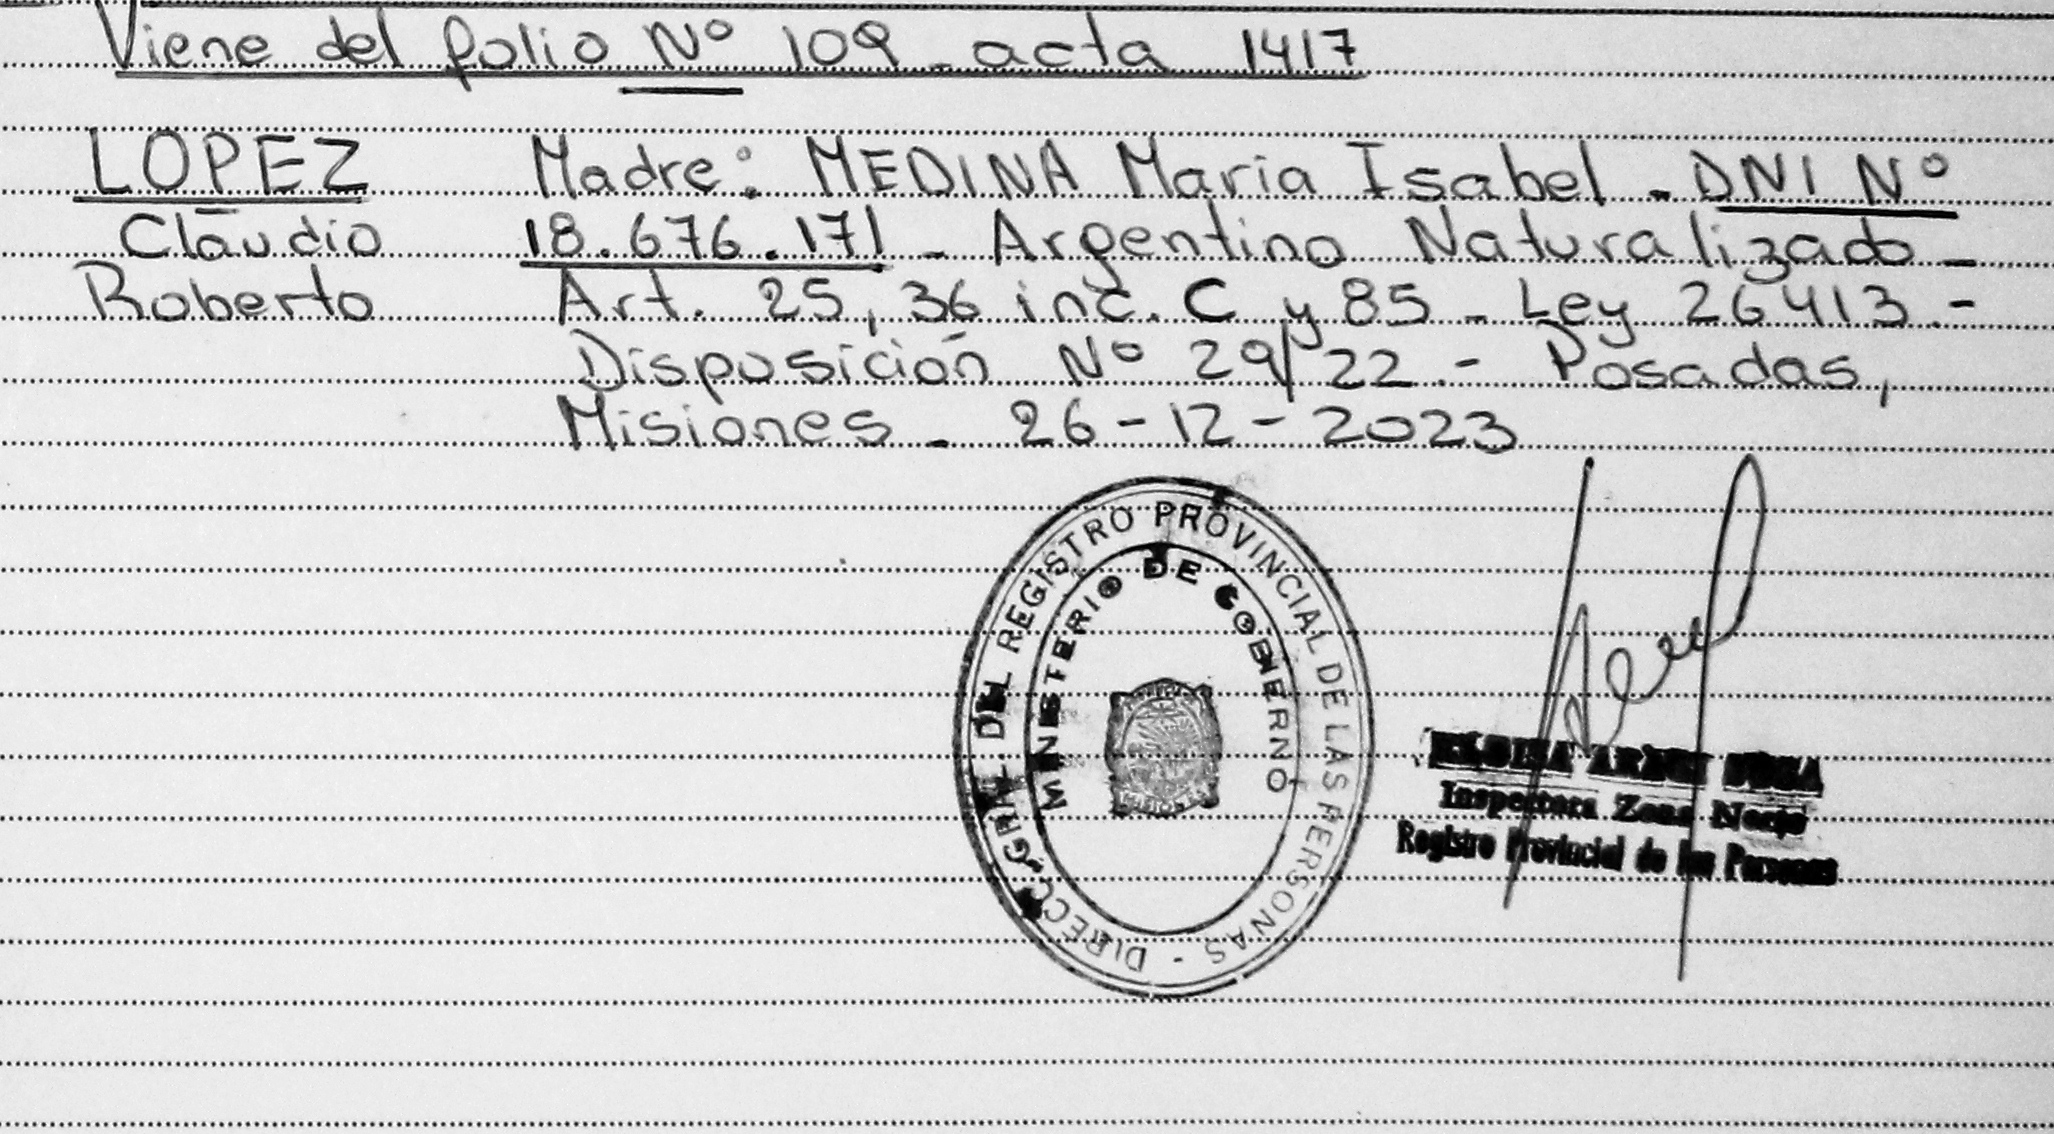 Viene del folio Nº 109 - acta 1417
LOPEZ Madre: MEDINA Maria Isabel - DNI Nº
Claudio 18.676.171 - Argentino Naturalizado -
Roberto Art. 25, 36 inc. C y 85 - Ley 26413.-
Disposición Nº 29/22.- Posadas,
Misiones - 26-12-2023
DIRECC. GRAL. DEL REGISTRO PROVINCIAL DE LAS PERSONAS -
MINISTERIO DE GOBIERNO
MISIONES
Inspectora Zona Norte
Registro Provincial de las Personas